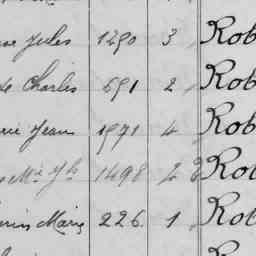 Jules 1290 3 Rob
Charles 691 2 Rob
Jean 1971 4 Rob
1498 2 Rob
Marie 226 1 Rob